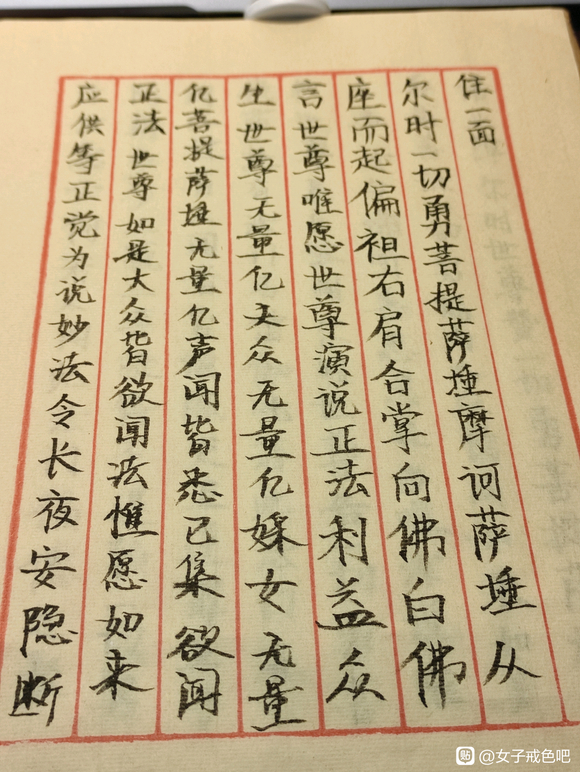 住一面
尔时一切勇菩提萨埵摩诃萨埵从
座而起偏袒右肩合掌向佛白佛
言世尊唯愿世尊演说正法利益众
生世尊无量亿天众无量亿婇女无量
亿菩提萨埵无量亿声闻皆悉已集欲闻
正法世尊如是大众皆欲闻法惟愿如来
应供等正觉为说妙法令长夜安隐断
贴 @女子戒色吧